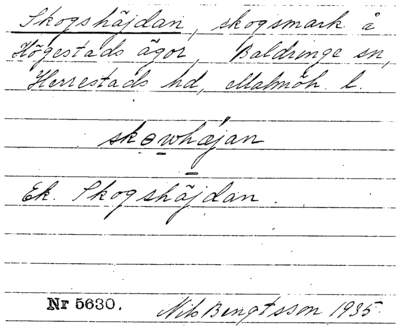 Skogshäjdan, skogsmark å
Högestads ägor, Baldringe sn,
Herrestads hd, Malmöh. l.
skɵwhájan
Ek. Skogshäjdan.
Nr 5630. Nils Bengtsson 1935.